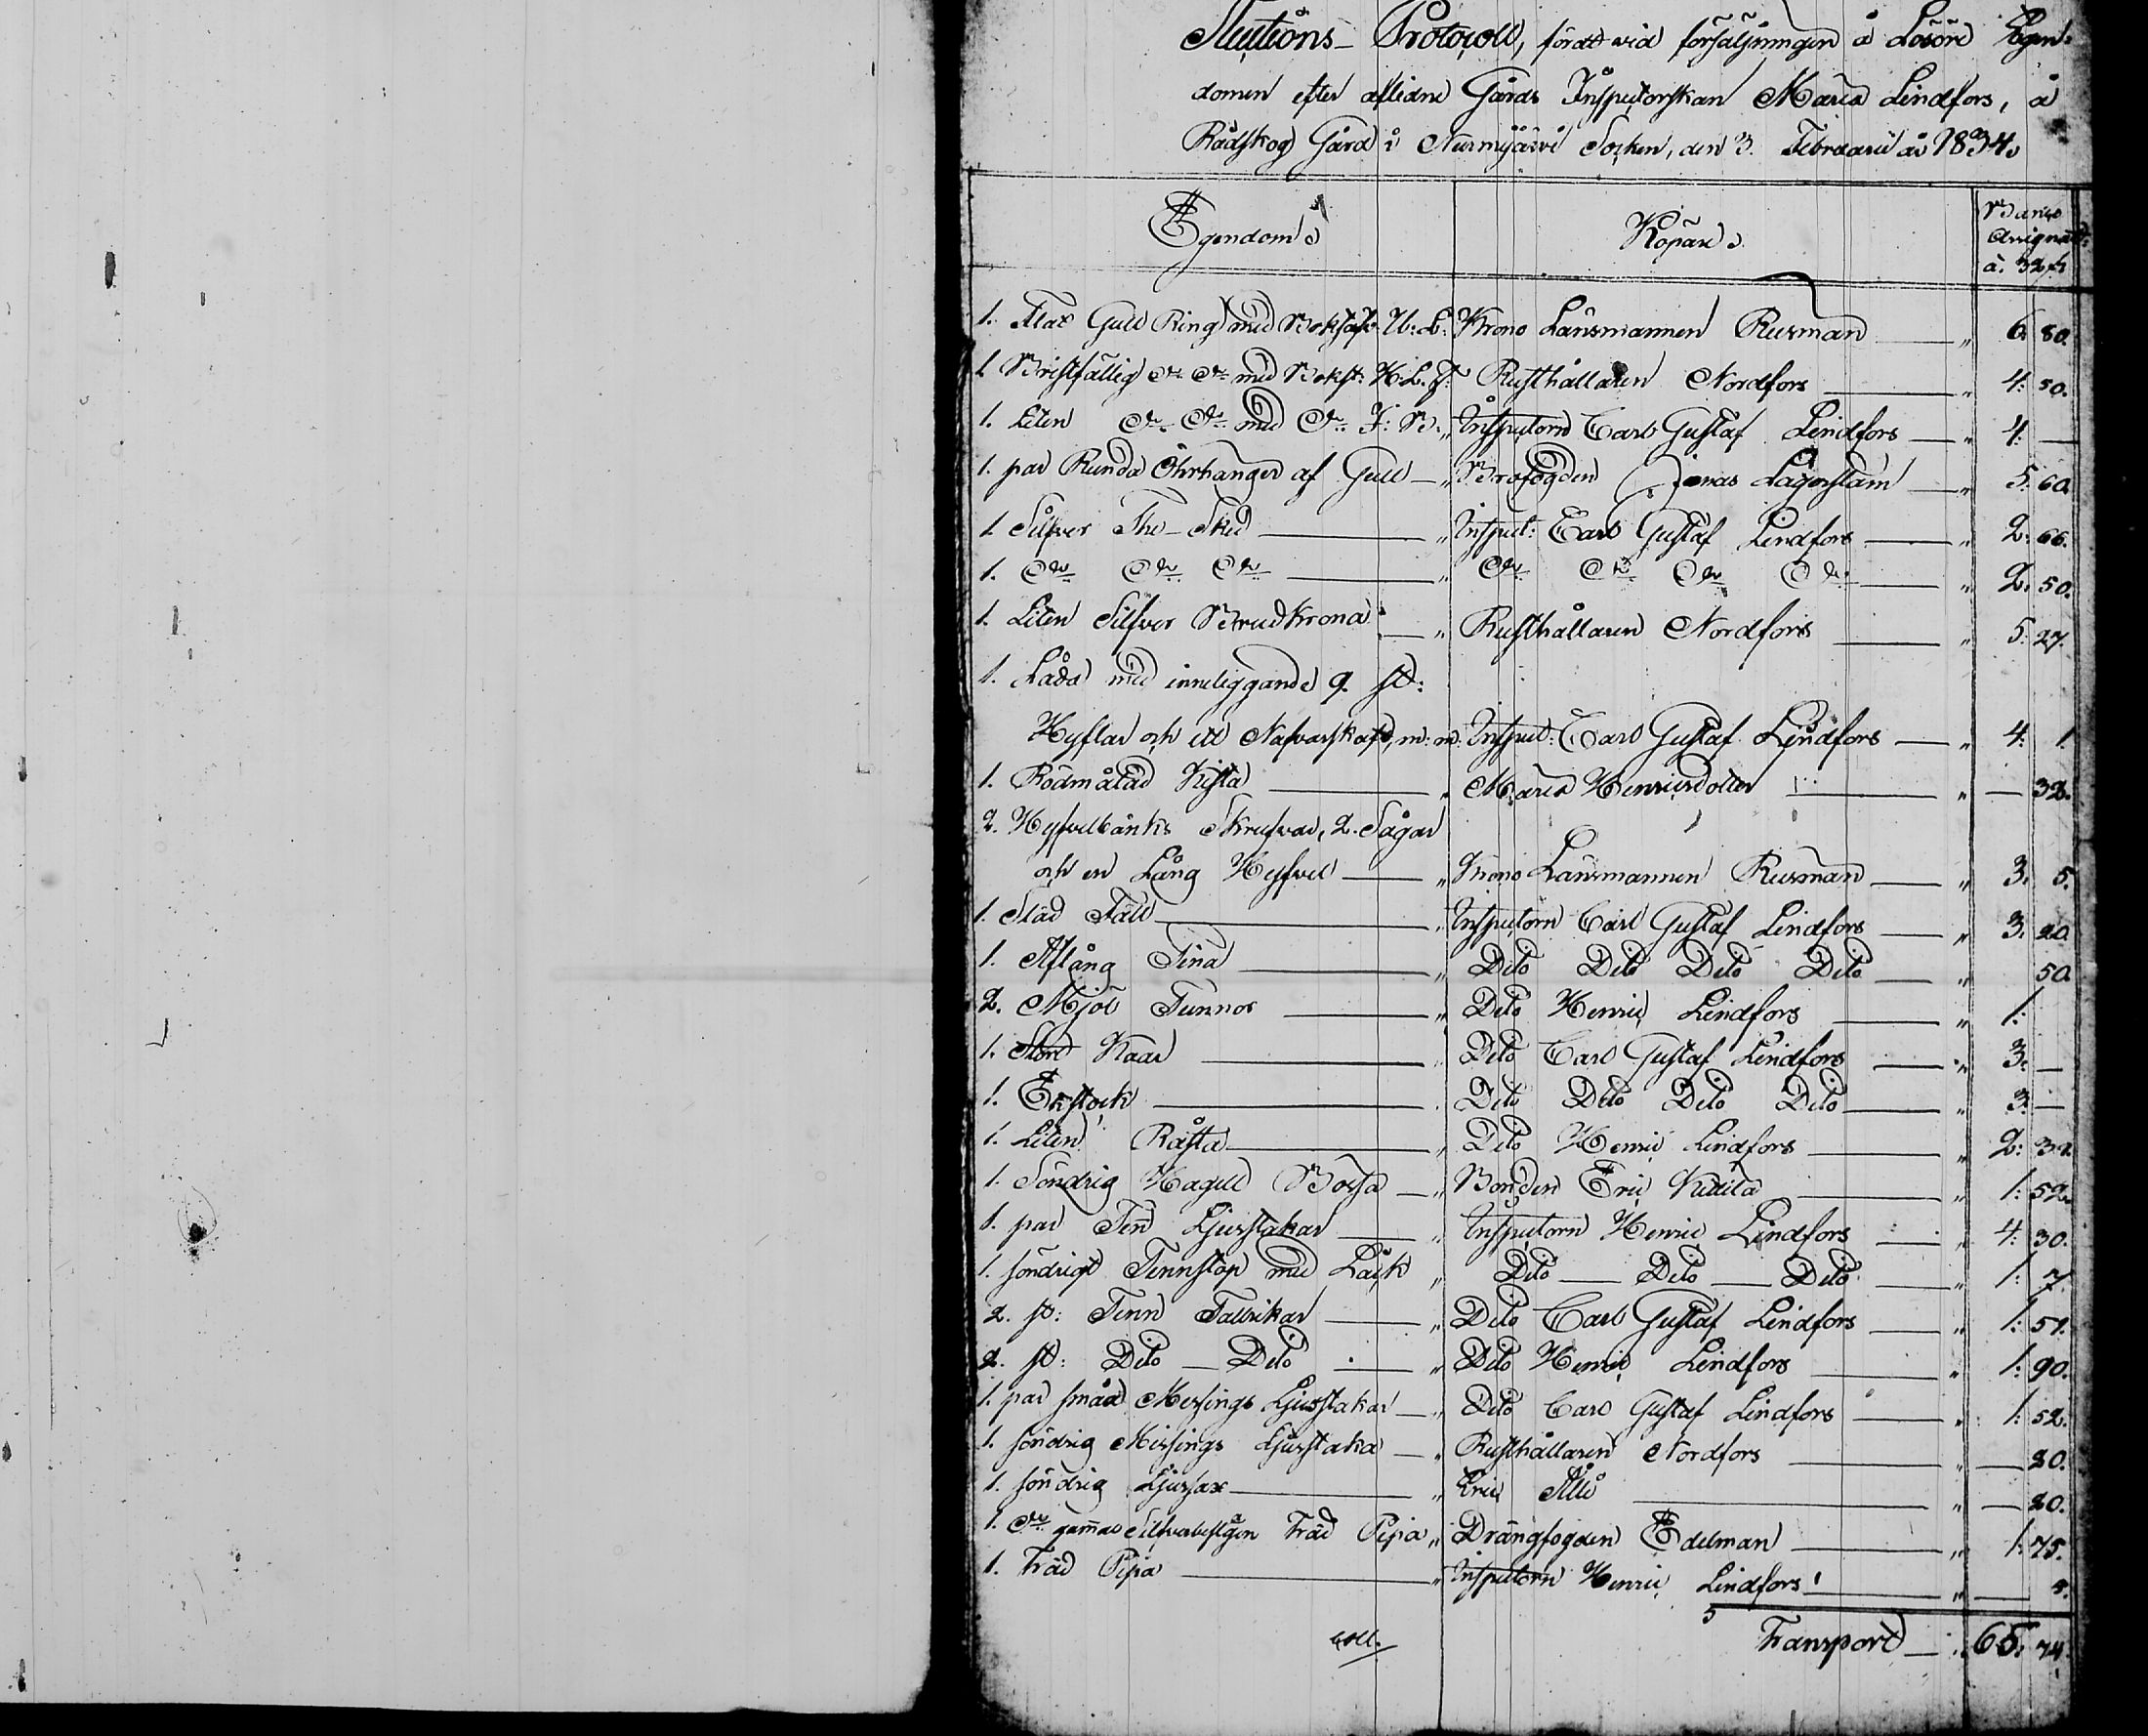 Auctions-Protocoll, fördt vid försäljningen å Lösöre Egen-
domen efter aflidne Gårds Inspectorskan Maria Lindfors, å
Rådskog Gård i Nurmijärvi Socken, den 3. Februarii år 1834.
Egendom. Köpare. Banco Assignat: à 32 ſk
1. Flat Guld Ring med Bokstäf: Kro​no Länsmannen Rusman " 6. 80.
1 Bristfällig Do Do med Bokst: H: L. Rusthållaren Nordfors " 4: 50.
1. Liten Do Do med Do Inspectorn Carl Gustaf Lindfors " 4: —
1. par Runda Öhrhänger af Gull " Brofogden Jonas Lagerstam " 5: 60.
1 Silfver The-Sked " Inspect: Carl Gustaf Lindfors " 2: 66.
1. Do Do Do " Do Do Do Do " 2. 50.
1. Liten Silfver Brudkrona " Rusthållaren Nordfors " 5: 27.
1. Låda med inneliggande 9. st:
Hyflar och ett Nafvarskaft, m: m: Inspect: Carl Gustaf Lindfors " 4: 1.
1. Rödmålad Kista " Maria Henricsdotter " — 32.
2. Hyfvelbänks Skrufvar, 2. Sågar
och en Lång Hyfvel " Krono Länsmannen Rusman " 3. 5.
1. Städ " Inspectorn Carl Gustaf Lindfors " 3. 20.
1. Aflång Tina " Dito Dito Dito Dito " 50.
2. Mjöl Tunnor " Dito Henric Lindfors " 1:
1. Stort Kaar Dito Carl Gustaf Lindfors " 3. —
1. Ekstock Dito Dito Dito Dito " 3. —
1. Liten " Dito Henric Lindfors " 2: 32.
1. Söndrig Hagell Bössa " Bonden Eric " 1: 52.
1. par Ten Ljusstakar " Inspectorn Henric Lindfors " 4: 30.
1. söndrigt Tennstop med Låck " Dito — Dito — Dito " 1: 7.
2. st: Tenn Tallrikar " Dito Carl Gustaf Lindfors " 1: 51.
2. st: Dito — Dito " Dito Henric Lindfors " 1: 90.
1. par små Messings Ljusstakar " Dito Carl Gustaf Lindfors " 1: 52.
1. söndrig Messings Ljusstaka " Rusthållaren Nordfors " — 20.
1. söndrig Ljussax " Eric " — 20.
1. Do gammal Silfverbeslagen Träd Pipa " Drängfogden Edelman " 1: 75.
1. Träd Pipa " Inspectorn Henric Lindfors " —
Transport 65: 74.